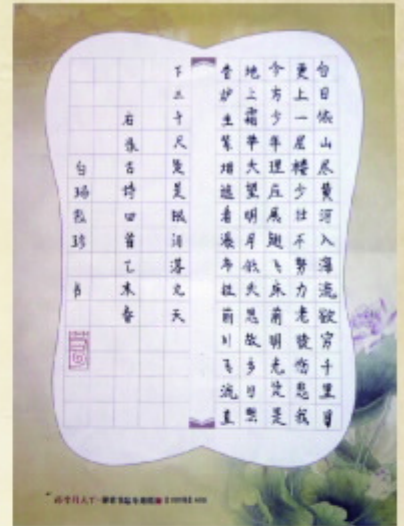 白日依山尽黄河入海流欲穷千里目
更上一层楼少壮不努力老徒伤悲我
今方少年理应展翅飞床前明光疑是
地上霜举头望明月低头思故乡日照
香炉生紫烟遥看瀑布挂前川飞流直
下三千尺疑是银河落九天
右录古诗四首乙未春
白 书